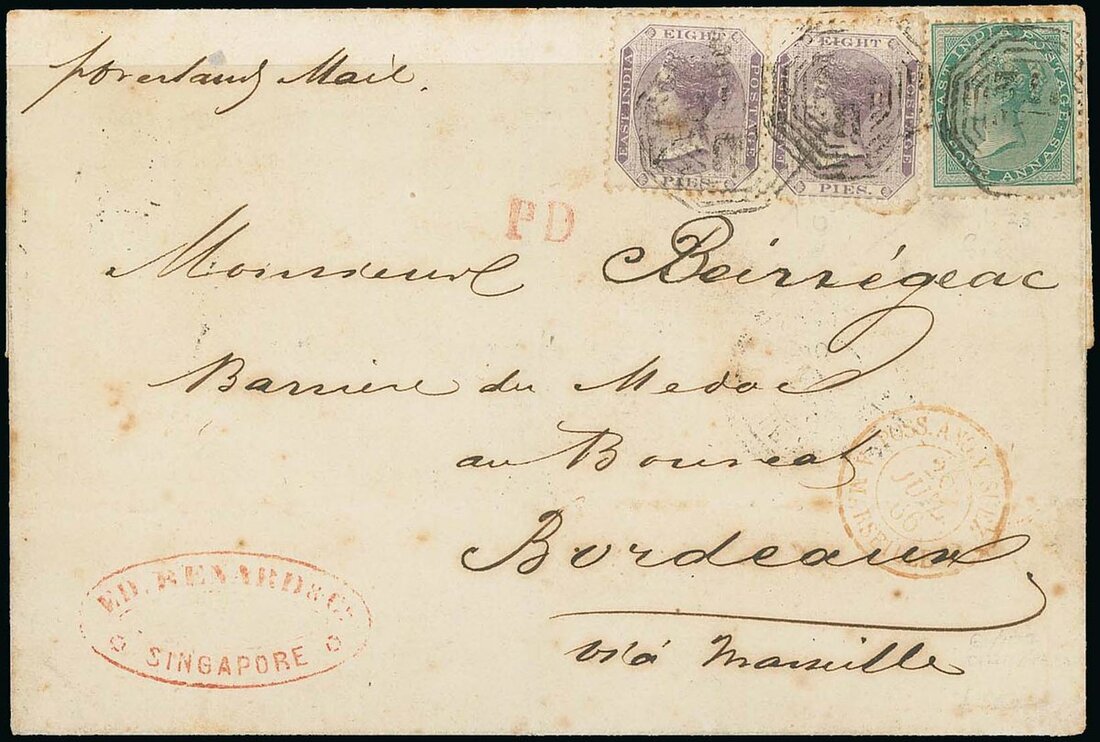 p overland Mail.
EIGHT
EAST INDIA
POSTAGE
PIES.
EIGHT
POSTAGE
PIES.
EAST INDIA POSTAGE
FOUR ANNAS
PD
Monsieur Beirrégeac
Barrière du Medoc
au Bouscat
Bordeaux
via Marseille
POSS. ANG. V. SUEZ
MARSEILLE
JUIL
66
ED. RENARD & Co
SINGAPORE